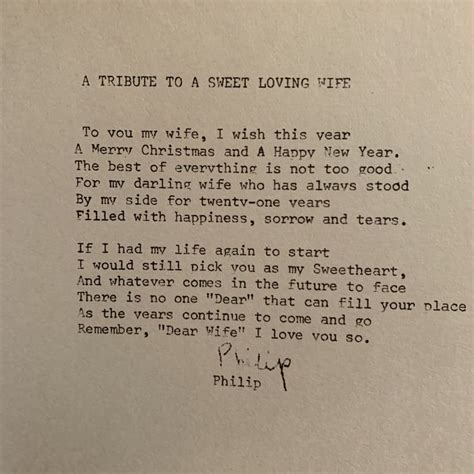 A TRIBUTE TO A SWEET LOVING WIFE
To you my wife, I wish this year
A Merry Christmas and A Happy New Year.
The best of everything is not too good
For my darling wife who has always stood
By my side for twenty-one years
Filled with happiness, sorrow and tears.
If I had my life again to start
I would still pick you as my Sweetheart,
And whatever comes in the future to face
There is no one "Dear" that can fill your place
As the years continue to come and go
Remember, "Dear Wife" I love you so.
Philip
Philip